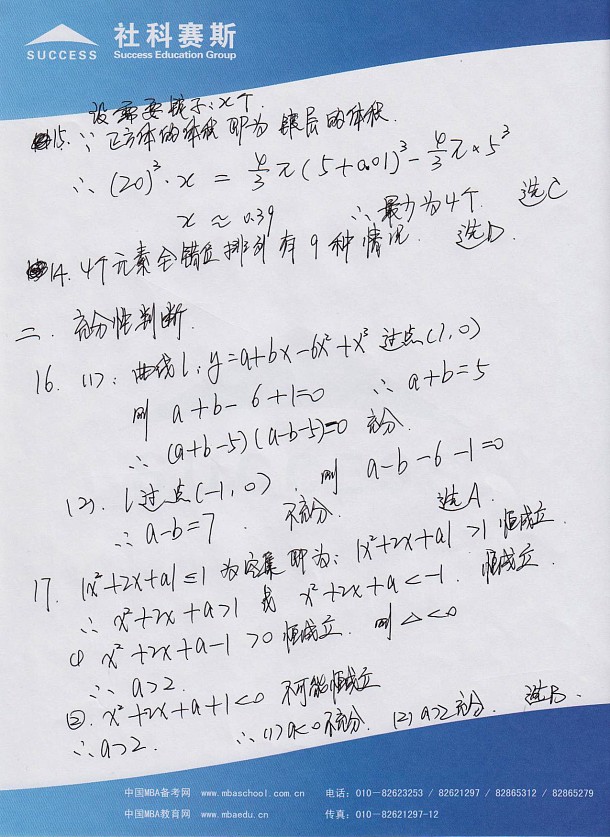 社科赛斯
SUCCESS Success Education Group
设需要锭子：x个.
15. ∵ 正方体的体积即为镀层的体积.
∴ (20)³·x = 4/3 π (5+0.01)³ - 4/3 π × 5³
x ≈ 0.39 ∴ 最少为4个. 选C
14. 4个元素全错位排列有9种情况. 选D.
二. 充分性判断.
16. (1): 曲线l: y=a+bx-6x²+x³ 过点(1,0)
则 a+b-6+1=0 ∴ a+b=5
∴ (a+b-5)(a-b-5)=0 充分.
(2). l过点(-1,0). 则 a-b-6-1=0
∴ a-b=7. 不充分. 选A.
17. |x²+2x+a|≤1 为空集即为: |x²+2x+a|>1 恒成立.
∴ x²+2x+a>1 或 x²+2x+a<-1. 恒成立.
① x²+2x+a-1>0 恒成立. 则 △<0
∴ a>2.
②. x²+2x+a+1<0 不可能恒成立
∴ a>2. ∴ (1) a<0 不充分. (2) a>2 充分. 选B.
中国MBA备考网 www.mbaschool.com.cn 电话：010－82623253 / 82621297 / 82865312 / 82865279
中国MBA教育网 www.mbaedu.cn 传真：010－82621297-12